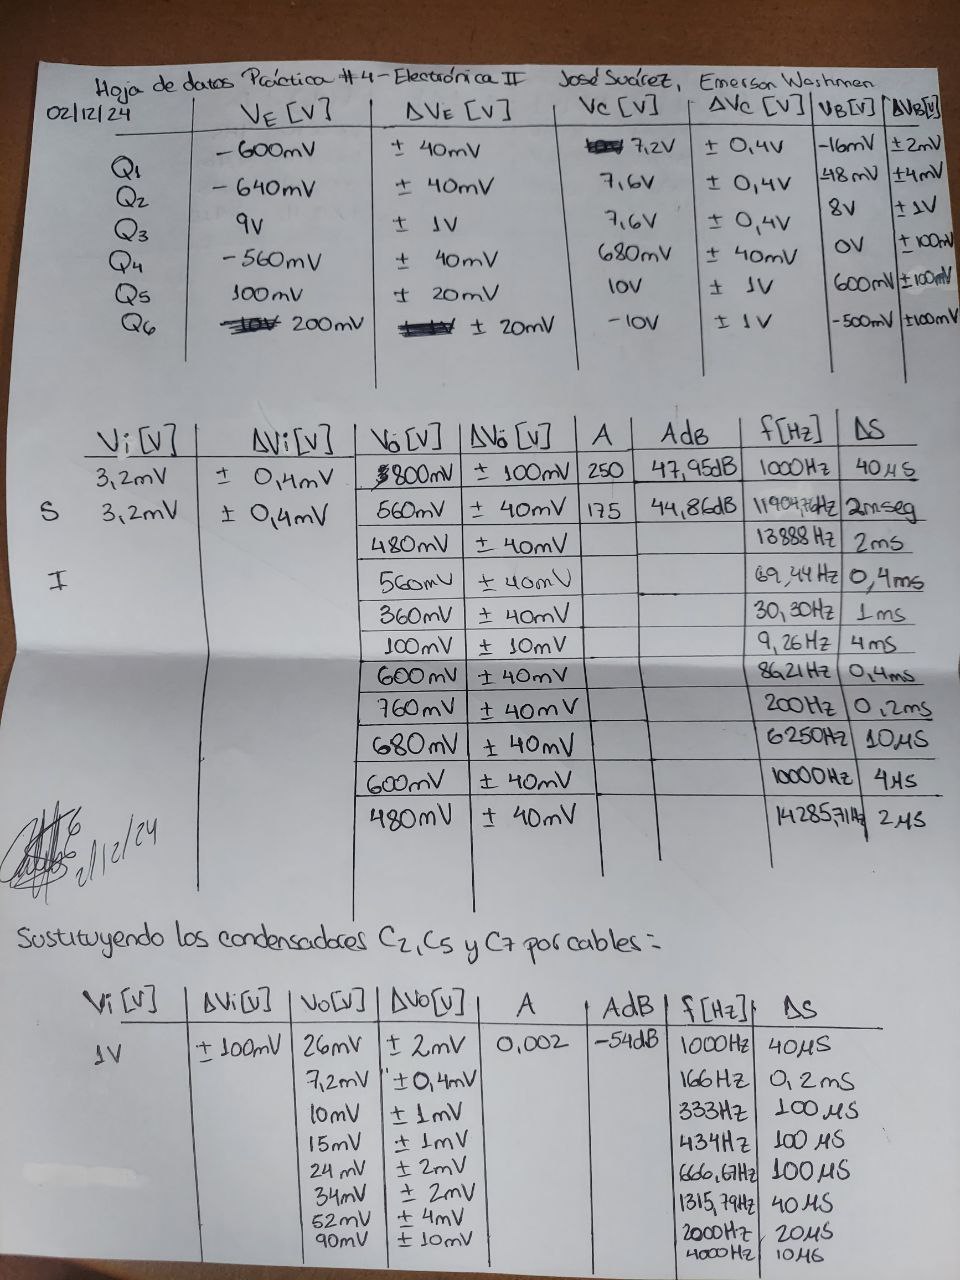 Hoja de datos Práctica #4 - Electrónica II José Suárez, Emerson Washmen
02/12/24 VE [V] ΔVE [V] VC [V] ΔVC [V] VB [V] ΔVB [V]
Q1 -600mV ± 40mV 7,2V ± 0,4V -16mV ±2mV
Q2 -640mV ± 40mV 7,6V ± 0,4V 48mV ±4mV
Q3 9V ± 1V 7,6V ± 0,4V 8V ±1V
Q4 -560mV ± 40mV 680mV ± 40mV 0V ±100mV
Q5 100mV ± 20mV 10V ± 1V 600mV ±100mV
Q6 200mV ± 20mV -10V ± 1V -500mV ±100mV
Vi [V] ΔVi [V] Vo [V] ΔVo [V] A AdB f[Hz] ΔS
3,2mV ± 0,4mV 800mV ± 100mV 250 47,95dB 1000Hz 40µS
S 3,2mV ± 0,4mV 560mV ± 40mV 175 44,86dB 11904,76Hz 2mseg
480mV ± 40mV 13888Hz 2ms
I 560mV ± 40mV 69,44Hz 0,4ms
360mV ± 40mV 30,30Hz 1ms
100mV ± 10mV 9,26Hz 4ms
600mV ± 40mV 86,21Hz 0,4ms
760mV ± 40mV 200Hz 0,2ms
680mV ± 40mV 6250Hz 10µS
600mV ± 40mV 10000Hz 4µS
480mV ± 40mV 14285,71Hz 2µS
2/12/24
Sustituyendo los condensadores C2, C5 y C7 por cables=
Vi [V] ΔVi [V] Vo [V] ΔVo [V] A AdB f[Hz] ΔS
1V ± 100mV 26mV ± 2mV 0,002 -54dB 1000Hz 40µS
7,2mV " ±0,4mV 166Hz 0,2ms
10mV ± 1mV 333Hz 100µS
15mV ± 1mV 434Hz 100µS
24mV ± 2mV 666,67Hz 100µS
34mV ± 2mV 1315,79Hz 40µS
52mV ± 4mV 2000Hz 20µS
90mV ± 10mV 4000Hz 10µS